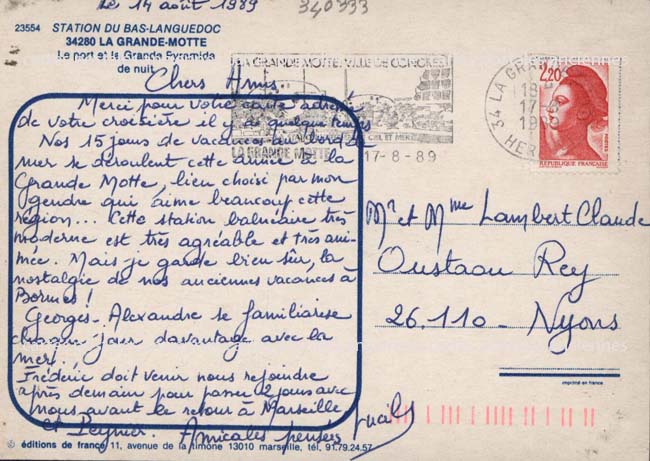 Le 14 août 1989
340333
23554 STATION DU BAS-LANGUEDOC
34280 LA GRANDE-MOTTE
Le port et la Grande Pyramide
de nuit
Chers Amis.
Merci pour votre carte adressée
de votre croisière il y a quelque temps
Nos 15 jours de vacances au bord de
mer se déroulent cette année à la
Grande Motte, lieu choisi par mon
gendre qui aime beaucoup cette
région... Cette station balnéaire très
moderne est très agréable et très ani-
mée. Mais je garde bien sûr, la
nostalgie de nos anciennes vacances à
Bormes !
Georges-Alexandre se familiarise
chaque jour davantage avec la
mer!
Frédéric doit venir nous rejoindre
après demain pour passer 2 jours avec
nous avant le retour à Marseille
et Peynier. Amicales pensées
Lucile
© éditions de france 11, avenue de la timone 13010 marseille, tél. 91.79.24.57
LA GRANDE MOTTE, VILLE DE CONGRES
CIEL ET MER
LA GRANDE MOTTE
17-8-89
34 LA GRANDE
18H
17-8
1989
HER
2,20
POSTES
REPUBLIQUE FRANÇAISE
Mr et Mme Lambert Claude
Oustaou Rey
26.110 - Nyons
imprimé en france